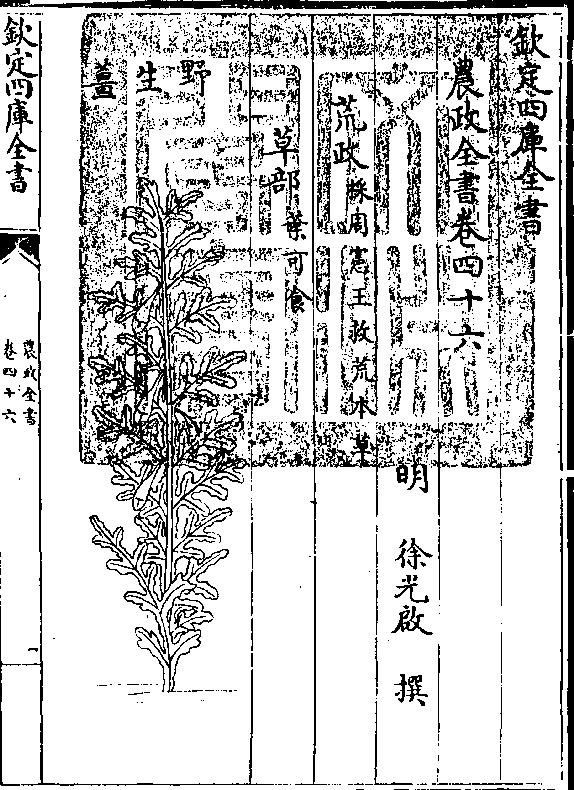 欽定四庫全書
農政全書卷四十六
明 徐光啟 撰
荒政 採周憲王救荒本草
草部 葉可食
野生薑
欽定四庫全書
農政全書
卷四十六
一